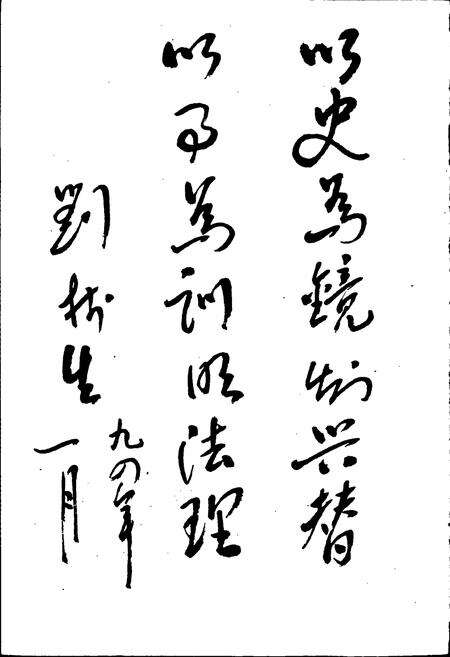 以史為鏡知兴替
以事為訓明法理
劉树生
九四年
一月